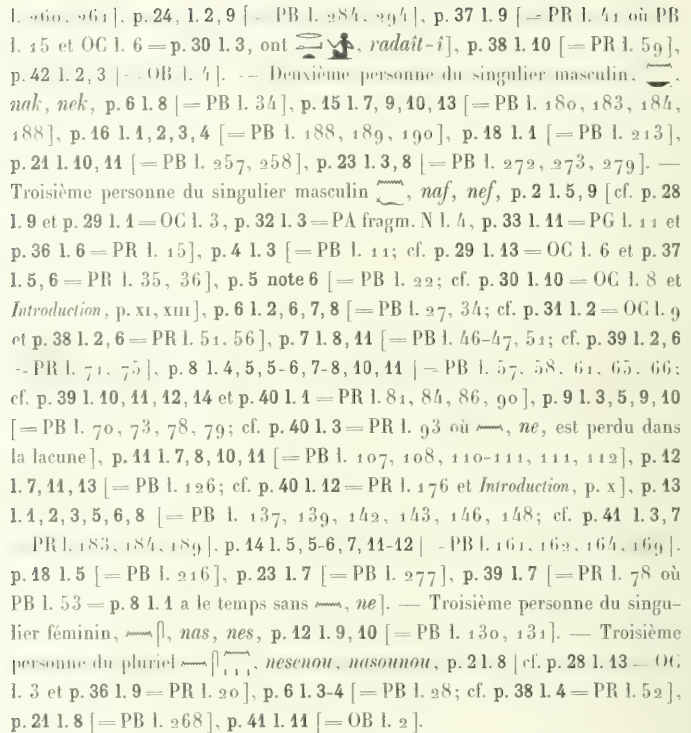 l. 260, 261], p. 24, l. 2, 9 [= PB l. 284, 294], p. 37 l. 9 [= PR l. 41 où PB
l. 15 et OC l. 6 = p. 30 l. 3, ont , radaît-î], p. 38 l. 10 [= PR l. 59],
p. 42 l. 2, 3 [= OB l. 4]. — Deuxième personne du singulier masculin, ,
nak, nek, p. 6 l. 8 [= PB l. 34], p. 15 l. 7, 9, 10, 13 [= PB l. 180, 183, 184,
188], p. 16 l. 1, 2, 3, 4 [= PB l. 188, 189, 190], p. 18 l. 1 [= PB l. 213],
p. 21 l. 10, 11 [= PB l. 257, 258], p. 23 l. 3, 8 [= PB l. 272, 273, 279]. —
Troisième personne du singulier masculin , naf, nef, p. 2 l. 5, 9 [cf. p. 28
l. 9 et p. 29 l. 1 = OC l. 3, p. 32 l. 3 = PA fragm. N l. 4, p. 33 l. 11 = PG l. 11 et
p. 36 l. 6 = PR l. 15], p. 4 l. 3 [= PB l. 11; cf. p. 29 l. 13 = OC l. 6 et p. 37
l. 5, 6 = PR l. 35, 36], p. 5 note 6 [= PB l. 22; cf. p. 30 l. 10 = OC l. 8 et
Introduction, p. XI, XIII], p. 6 l. 2, 6, 7, 8 [= PB l. 27, 34; cf. p. 31 l. 2 = OC l. 9
et p. 38 l. 2, 6 = PR l. 51, 56], p. 7 l. 8, 11 [= PB l. 46-47, 51; cf. p. 39 l. 2, 6
= PR l. 71, 75], p. 8 l. 4, 5, 5-6, 7-8, 10, 11 [= PB l. 57, 58, 61, 65, 66;
cf. p. 39 l. 10, 11, 12, 14 et p. 40 l. 1 = PR l. 81, 84, 86, 90], p. 9 l. 3, 5, 9, 10
[= PB l. 70, 73, 78, 79; cf. p. 40 l. 3 = PR l. 93 où , ne, est perdu dans
la lacune], p. 11 l. 7, 8, 10, 11 [= PB l. 107, 108, 110-111, 111, 112], p. 12
l. 7, 11, 13 [= PB l. 126; cf. p. 40 l. 12 = PR l. 176 et Introduction, p. X], p. 13
l. 1, 2, 3, 5, 6, 8 [= PB l. 137, 139, 142, 143, 146, 148; cf. p. 41 l. 3, 7
PR l. 183, 184, 189], p. 14 l. 5, 5-6, 7, 11-12 [= PB l. 161, 162, 164, 169],
p. 18 l. 5 [= PB l. 216], p. 23 l. 7 [= PB l. 277], p. 39 l. 7 [= PR l. 78 où
PB l. 53 = p. 8 l. 1 a le temps sans , ne]. — Troisième personne du singu-
lier féminin, , nas, nes, p. 12 l. 9, 10 [= PB l. 130, 131]. — Troisième
personne du pluriel , nesenou, nasounou, p. 2 l. 8 [cf. p. 28 l. 13 = OC
l. 3 et p. 36 l. 9 = PR l. 20], p. 6 l. 3-4 [= PB l. 28; cf. p. 38 l. 4 = PR l. 52],
p. 21 l. 8 [= PB l. 268], p. 41 l. 11 [= OB l. 2].